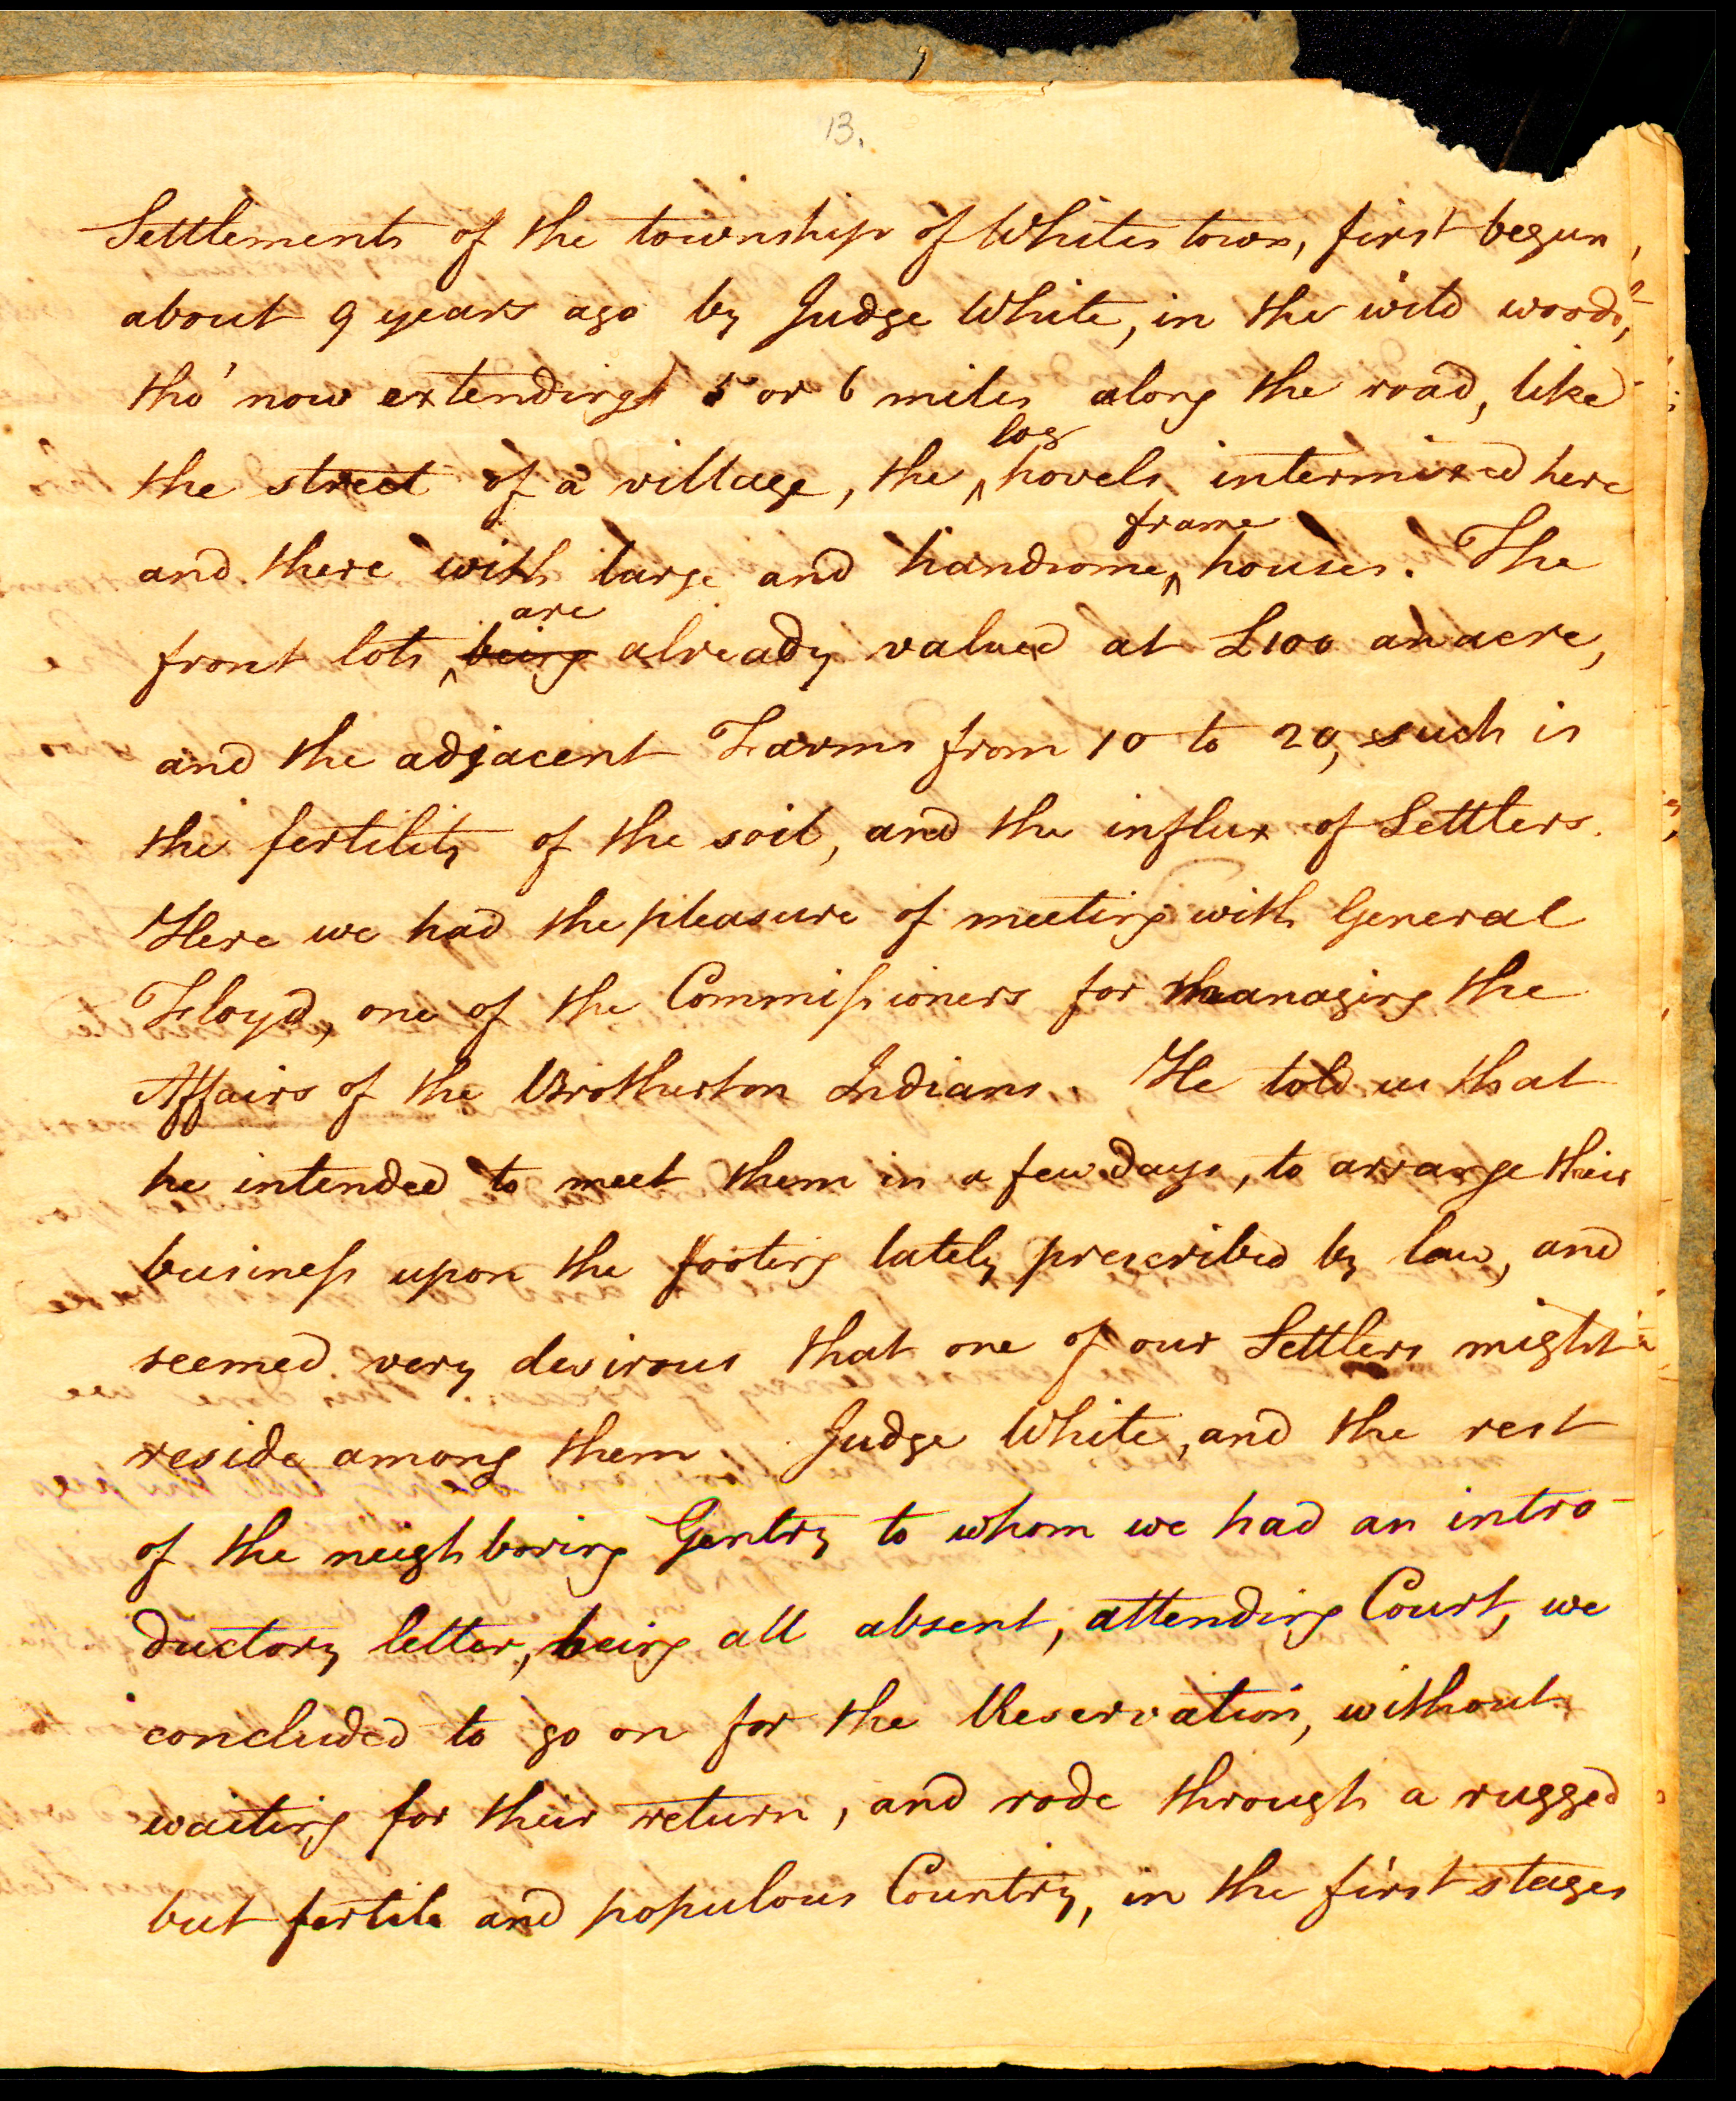 13.
Settlements of the township of Whites town, first begun,
about 9 years ago by Judge White, in the wild woods,
tho' now extending 5 or 6 miles along the road, like
the street of a village, the ^log hovels intermixed here
and there with large and handsome ^frame houses. The
front lots ^are being already valued at £100 an acre,
and the adjacent Farms from 10 to 20, such is
the fertility of the soil, and the influx of Settlers.
Here we had the pleasure of meeting with General
Floyd, one of the Commissioners for managing the
Affairs of the Brotherton Indians. He told us that
he intended to meet them in a few days, to arrange their
business upon the footing lately prescribed by law, and
seemed very desirous that one of our Settlers might
reside among them. Judge White, and the rest
of the neighboring Gentry to whom we had an intro-
ductory letter, being all absent, attending Court, we
concluded to go on for the Reservation, without
waiting for their return, and rode through a rugged
but fertile and populous Country, in the first stages